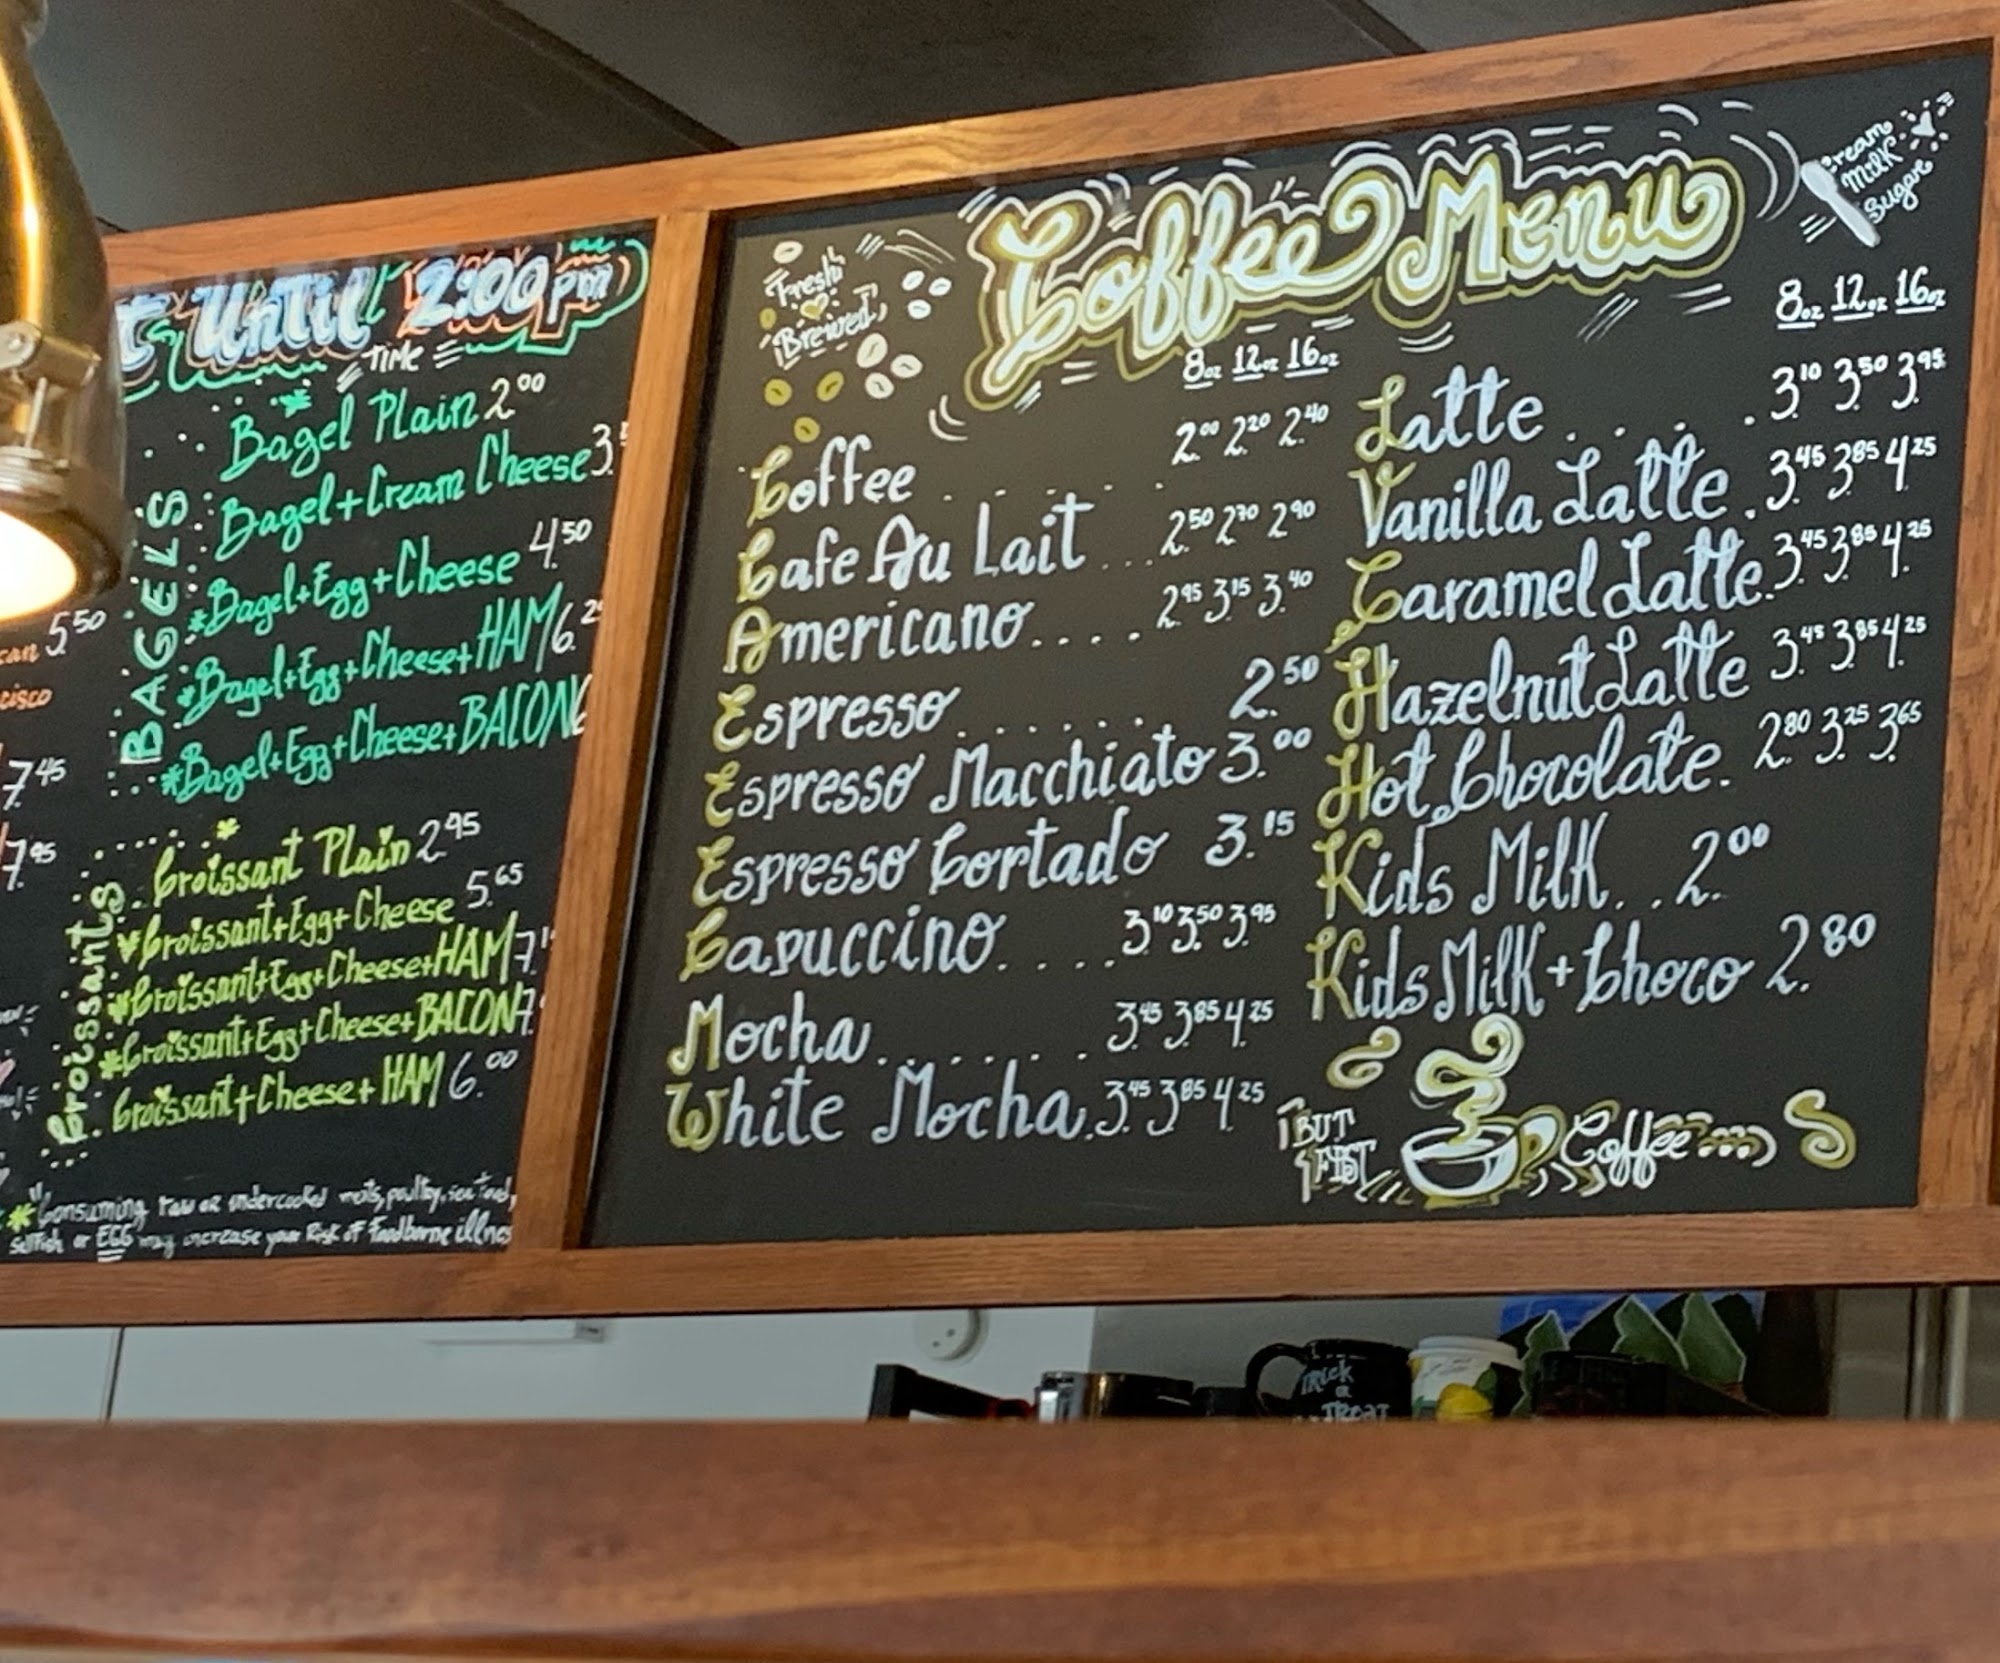 Until 2:00pm
TIME
BAGELS
Bagel Plain 2.00
Bagel+Cream Cheese 3.
*Bagel+Egg+Cheese 4.50
*Bagel+Egg+Cheese+HAM 6.
*Bagel+Egg+Cheese+BACON
Croissants
Croissant Plain 2.95
*Croissant+Egg+Cheese 5.65
*Croissant+Egg+Cheese+HAM 7.
*Croissant+Egg+Cheese+BACON 7.
Croissant+Cheese+HAM 6.00
*Consuming raw or undercooked
or EGG may increase your Risk of foodborne
5.50
7.45
7.95
Fresh
Brewed
Coffee Menu
Milk
Sugar
8oz 12oz 16oz
Coffee 2.00 2.20 2.40
Cafe Au Lait 2.50 2.70 2.90
Americano 2.95 3.15 3.40
Espresso 2.50
Espresso Macchiato 3.00
Espresso Cortado 3.15
Capuccino 3.10 3.50 3.95
Mocha 3.45 3.85 4.25
White Mocha 3.45 3.85 4.25
8oz 12oz 16oz
Latte 3.10 3.50 3.95
Vanilla Latte 3.45 3.85 4.25
Caramel Latte 3.45 3.85 4.25
Hazelnut Latte 3.45 3.85 4.25
Hot Chocolate 2.80 3.25 3.65
Kids Milk 2.00
Kids Milk + Choco 2.80
BUT
Coffee
TRICK
or
TREAT